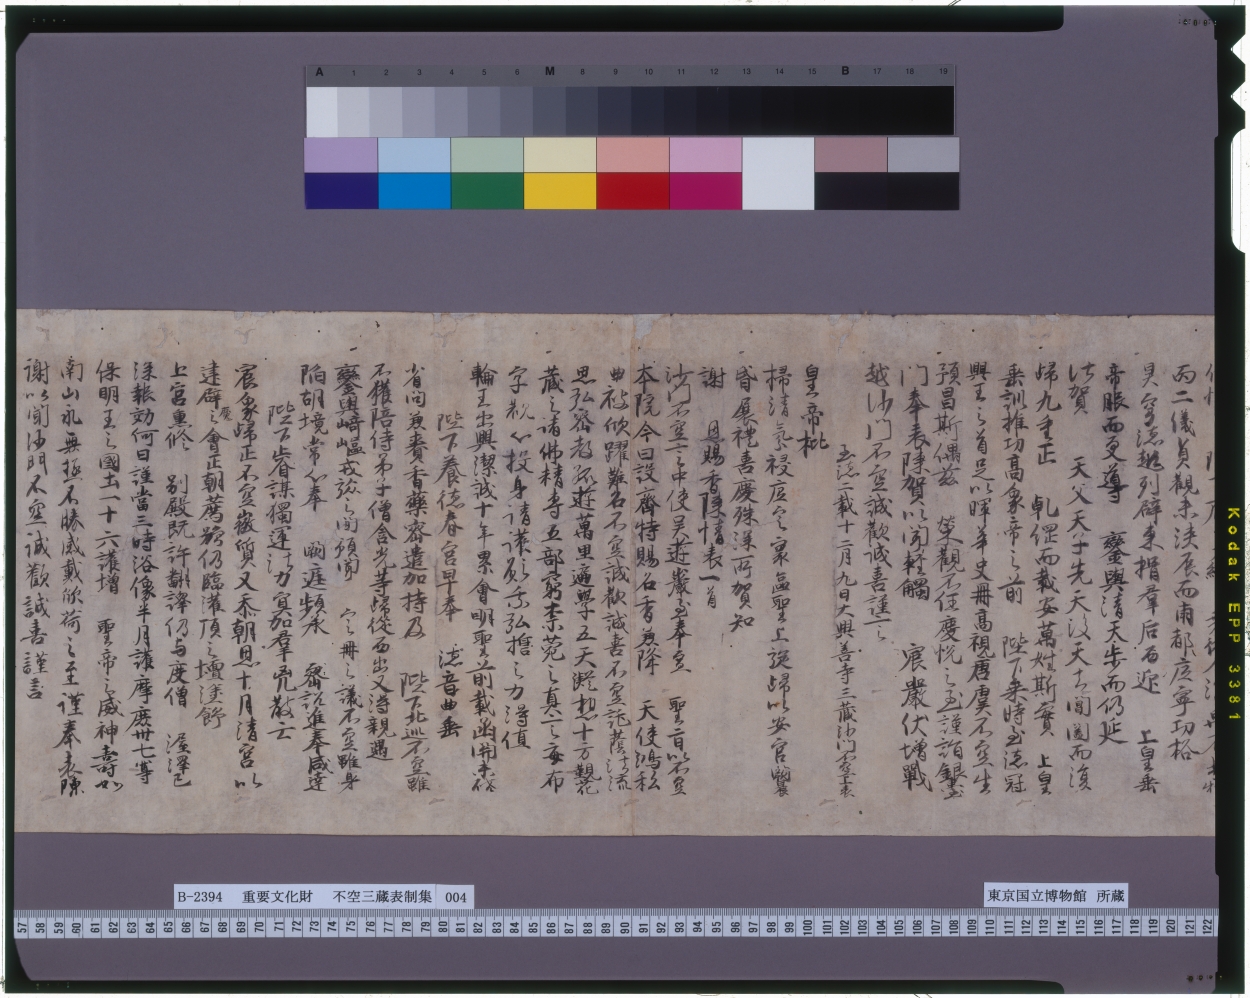 A 1 2 3 4 5 6 M 8 9 10 11 12 13 14 15 B 17 18 19
丙二儀貞觀未浹辰而兩都底寧功格
帝服而更導 鑾輿清天步而仍延
法賀 天父天子先天後天古聞國而須
歸九重正 乾罡而載安萬姓斯寧 上皇
垂訓推功高象帝之前 陛下乘時至德冠
興王之首足以暉華史冊高視唐虞不空生
預昌斯偶茲 榮觀不任慶悅之至謹詣銀臺
門奉表陳賀以聞輕觸 宸嚴伏增戰
越沙門不空誠歡誠喜謹言
至德二載十二月九日大興善寺三藏沙門不空上表
皇帝批
掃清氛祲底定寰區聖上旋歸以安宮闕
昏展禮善慶殊深所賀知
謝 恩賜香陳情表一首
沙門不空言中使吴遊巖至奉宣 聖旨以不空
本院今日設齋特賜名香兼降 天使鴻私
曲被欣躍難名不空誠歡誠喜不空託蔭法流
思弘密教孤遊萬里遍學五天凝想十方觀花
藏之諸佛精專五部窮柰苑之真言每布
字觀心投身請護願乘弘誓之力得值
輪王出興潔誠十年累會明聖前載函關未啓
陛下養德春宮早奉 德音曲垂
省問兼賚香藥密遣加持及 陛下北巡不空雖
不獲陪侍弟子僧含光等歸從西出又得親遇
鑾輿崎嶇戎旅之間預聞 定冊之議不空雖身
陷胡境常心奉 闕庭頻承 密詔進奉咸達
陛下睿謀獨運法力冥加羣兇散亡
宸象歸正不空微質又忝朝恩十月清宮以
建辟魔之會正朝薦號仍臨灌頂之壇塗飾
上宮熏修 別殿既許翻譯仍与度僧 渥澤已
深報効何日謹當三時浴像半月護摩庶卅七尊
保明王之國土一十六護增 聖帝之威神壽如
南山永無極不勝感戴欣荷之至謹奉表陳
謝以聞沙門不空誠歡誠喜謹言
B-2394 重要文化財 不空三蔵表制集 004
東京国立博物館 所蔵
57 58 59 60 61 62 63 64 65 66 67 68 69 70 71 72 73 74 75 76 77 78 79 80 81 82 83 84 85 86 87 88 89 90 91 92 93 94 95 96 97 98 99 100 101 102 103 104 105 106 107 108 109 110 111 112 113 114 115 116 117 118 119 120 121 122
Kodak EPP 3381